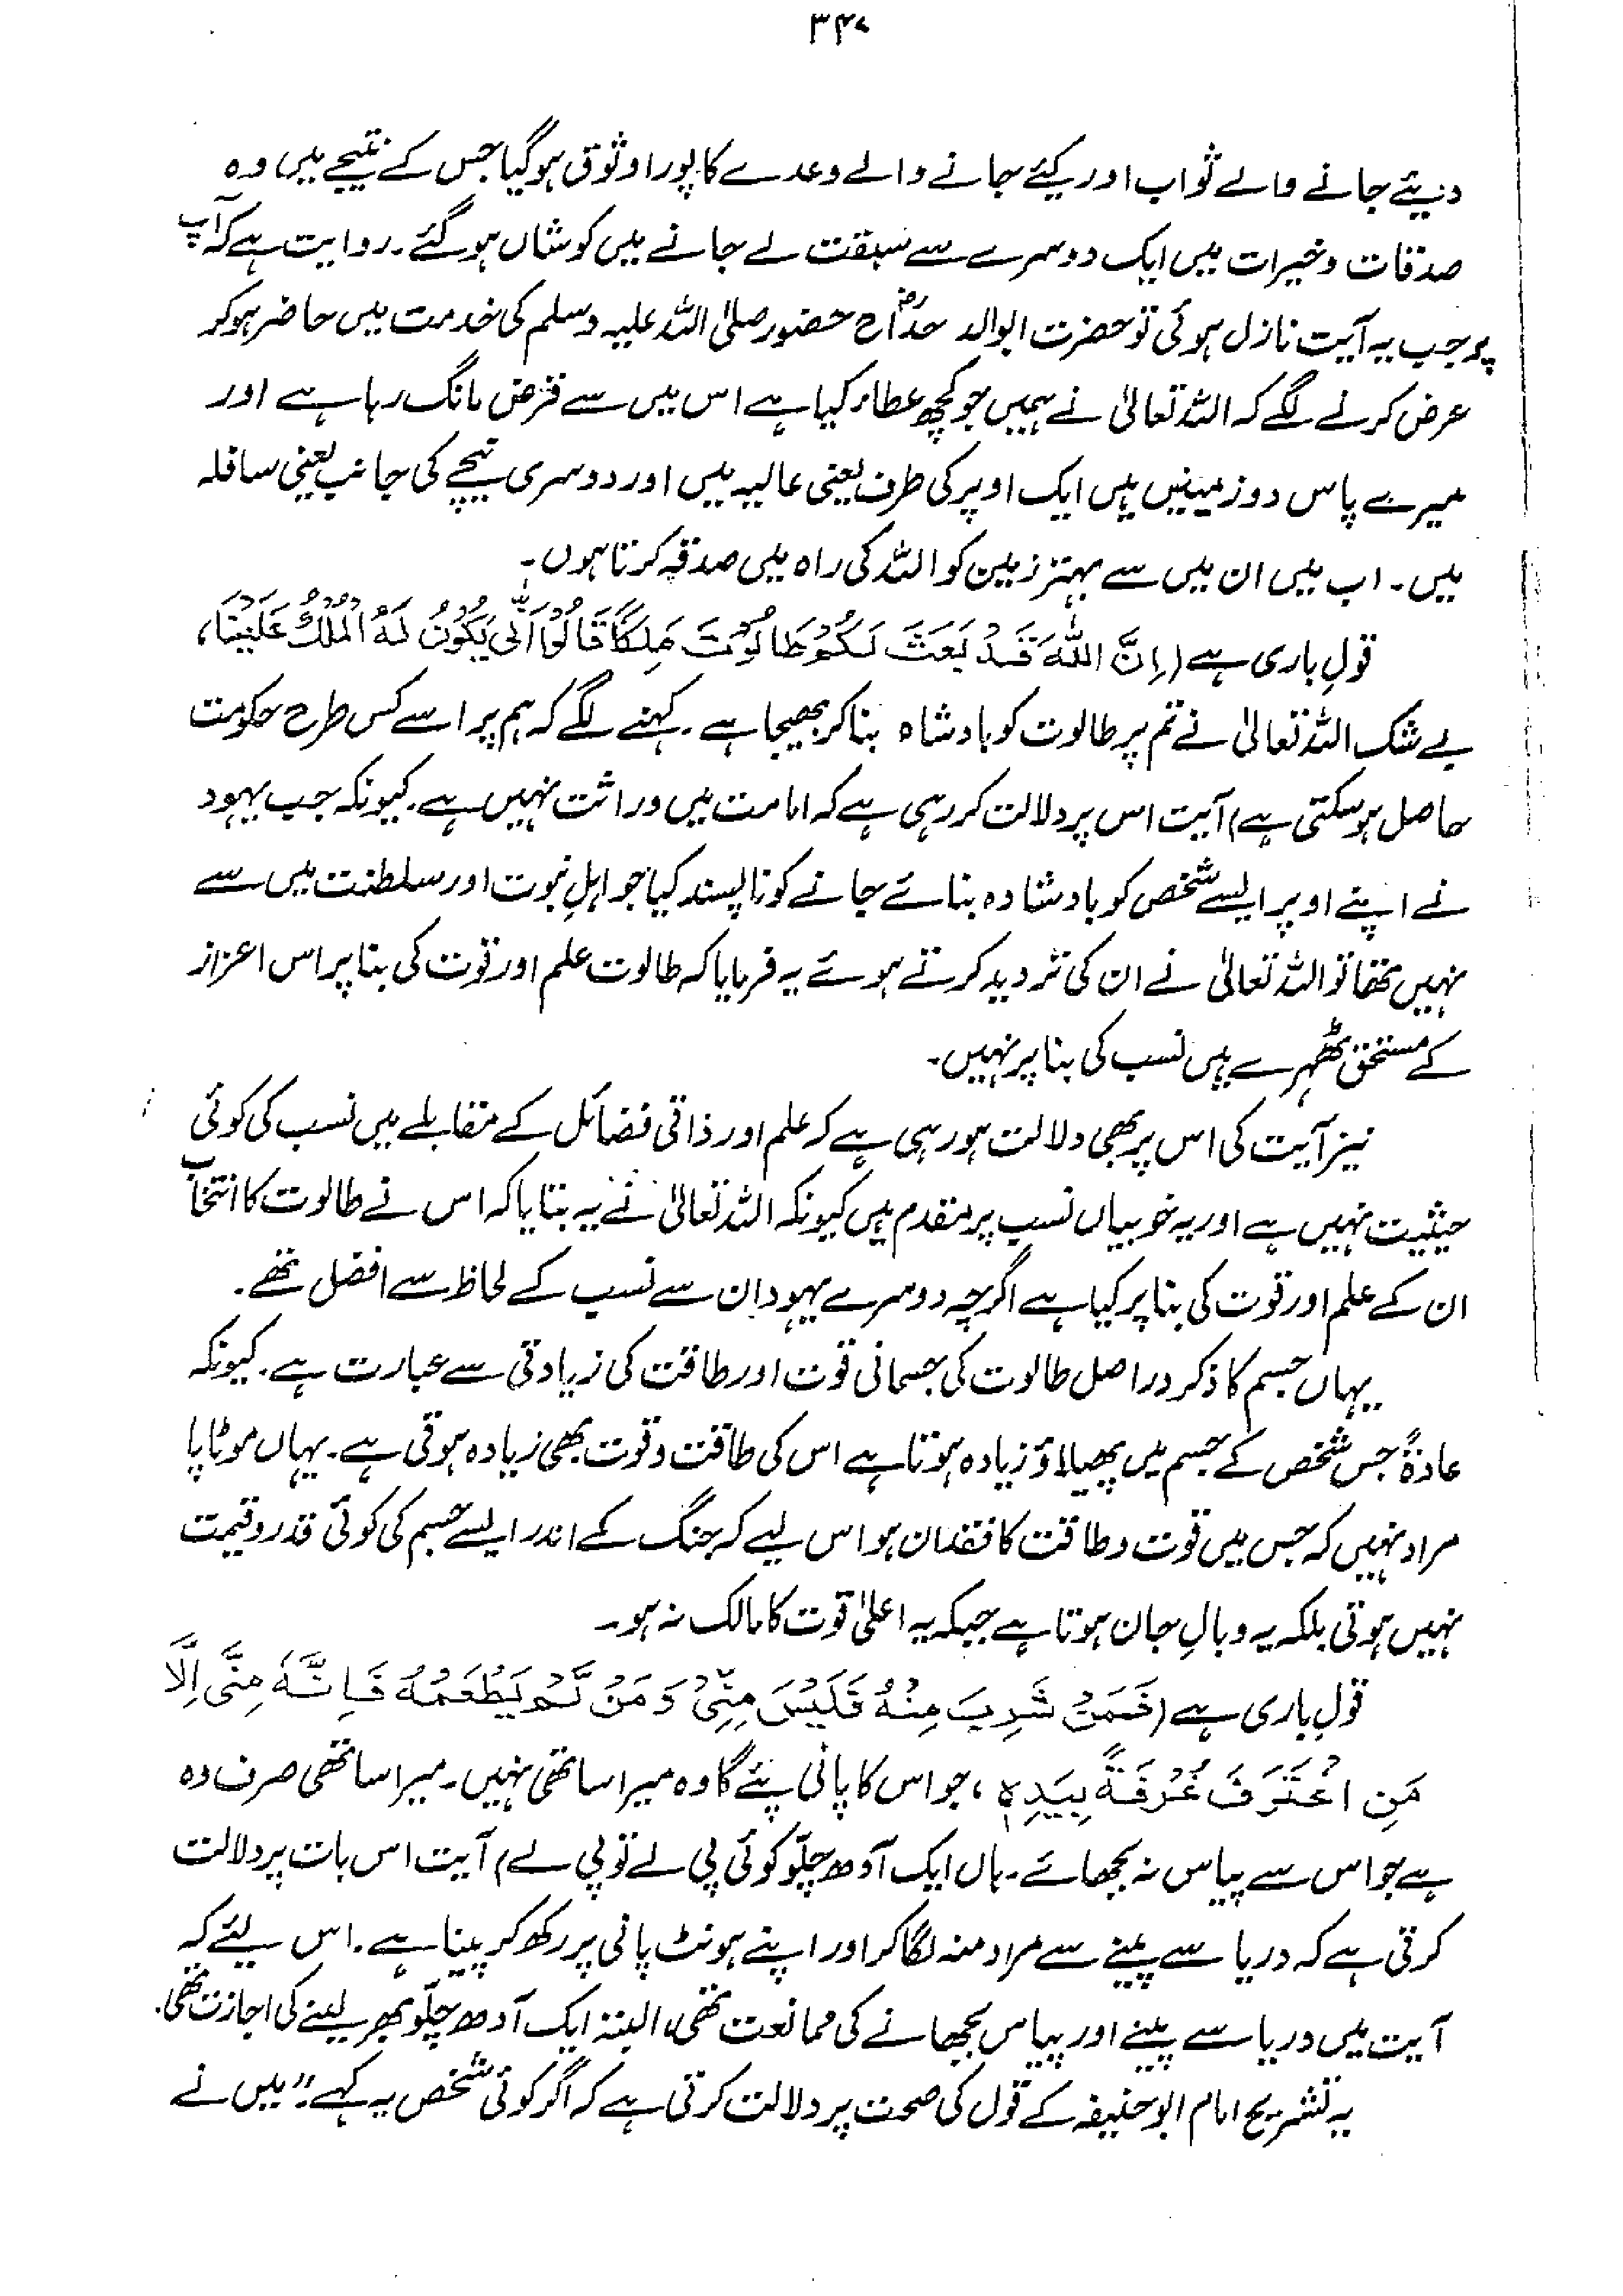 ۳۴۷
دیئے جانے والے ثواب اور کیئے جانے والے وعدے کا پورا وثوق ہو گیا جس کے نتیجے میں وہ
صدقات و خیرات میں ایک دوسرے سے سبقت لے جانے میں کوشاں ہو گئے۔ روایت ہے کہ آپ
پر جب یہ آیت نازل ہوئی تو حضرت ابوالدحداحؓ حضور صلی اللہ علیہ وسلم کی خدمت میں حاضر ہو کر
عرض کرنے لگے کہ اللہ تعالیٰ نے ہمیں جو کچھ عطاء کیا ہے اس میں سے قرض مانگ رہا ہے اور
میرے پاس دو زمینیں ہیں ایک اوپر کی طرف یعنی عالیہ میں اور دوسری نیچے کی جانب یعنی سافلہ
میں۔ اب میں ان میں سے بہتر زمین کو اللہ کی راہ میں صدقہ کرتا ہوں۔
قولِ باری ہے (اِنَّ اللّٰهَ قَدْ بَعَثَ لَكُمْ طَالُوْتَ مَلِكًا قَالُوْا اَنّٰى يَكُوْنُ لَهُ الْمُلْكُ عَلَيْنَا،
بے شک اللہ تعالیٰ نے تم پر طالوت کو بادشاہ بنا کر بھیجا ہے۔ کہنے لگے کہ ہم پر اسے کس طرح حکومت
حاصل ہو سکتی ہے) آیت اس پر دلالت کر رہی ہے کہ امامت میں وراثت نہیں ہے۔ کیونکہ جب یہود
نے اپنے اوپر ایسے شخص کو بادشادہ بنائے جانے کو ناپسند کیا جو اہلِ نبوت اور سلطنت میں سے
نہیں تھا تو اللہ تعالیٰ نے ان کی تردید کرتے ہوئے یہ فرمایا کہ طالوت علم اور قوت کی بنا پر اس اعزاز
کے مستحق ٹھہرے ہیں نسب کی بنا پر نہیں۔
نیز آیت کی اس پر بھی دلالت ہو رہی ہے کہ علم اور ذاتی فضائل کے مقابلے میں نسب کی کوئی
حیثیت نہیں ہے اور یہ خوبیاں نسب پر مقدم ہیں کیونکہ اللہ تعالیٰ نے یہ بتایا کہ اس نے طالوت کا انتخاب
ان کے علم اور قوت کی بنا پر کیا ہے اگرچہ دوسرے یہود ان سے نسب کے لحاظ سے افضل تھے۔
یہاں جسم کا ذکر دراصل طالوت کی جسمانی قوت اور طاقت کی زیادتی سے عبارت ہے۔ کیونکہ
عادۃً جس شخص کے جسم میں پھیلاؤ زیادہ ہوتا ہے اس کی طاقت و قوت بھی زیادہ ہوتی ہے۔ یہاں موٹاپا
مراد نہیں کہ جس میں قوت و طاقت کا فقدان ہو اس لیے کہ جنگ کے اندر ایسے جسم کی کوئی قدر و قیمت
نہیں ہوتی بلکہ یہ وبالِ جان ہوتا ہے جبکہ یہ اعلیٰ قوت کا مالک نہ ہو۔
قولِ باری ہے (فَمَنْ شَرِبَ مِنْهُ فَلَيْسَ مِنِّىْ وَمَنْ لَّمْ يَطْعَمْهُ فَاِنَّهٗ مِنِّىْ اِلَّا
مَنِ اغْتَرَفَ غُرْفَةً بِيَدِهٖ، جو اس کا پانی پئے گا وہ میرا ساتھی نہیں۔ میرا ساتھی صرف وہ
ہے جو اس سے پیاس نہ بجھائے۔ ہاں ایک آدھ چلّو کوئی پی لے تو پی لے) آیت اس بات پر دلالت
کرتی ہے کہ دریا سے پینے سے مراد منہ لگا کر اور اپنے ہونٹ پانی پر رکھ کر پینا ہے۔ اس لیئے کہ
آیت میں دریا سے پینے اور پیاس بجھانے کی ممانعت تھی، البتہ ایک آدھ چلّو بھر لینے کی اجازت تھی۔
یہ تشریح امام ابوحنیفہ کے قول کی صحت پر دلالت کرتی ہے کہ اگر کوئی شخص یہ کہے "میں نے